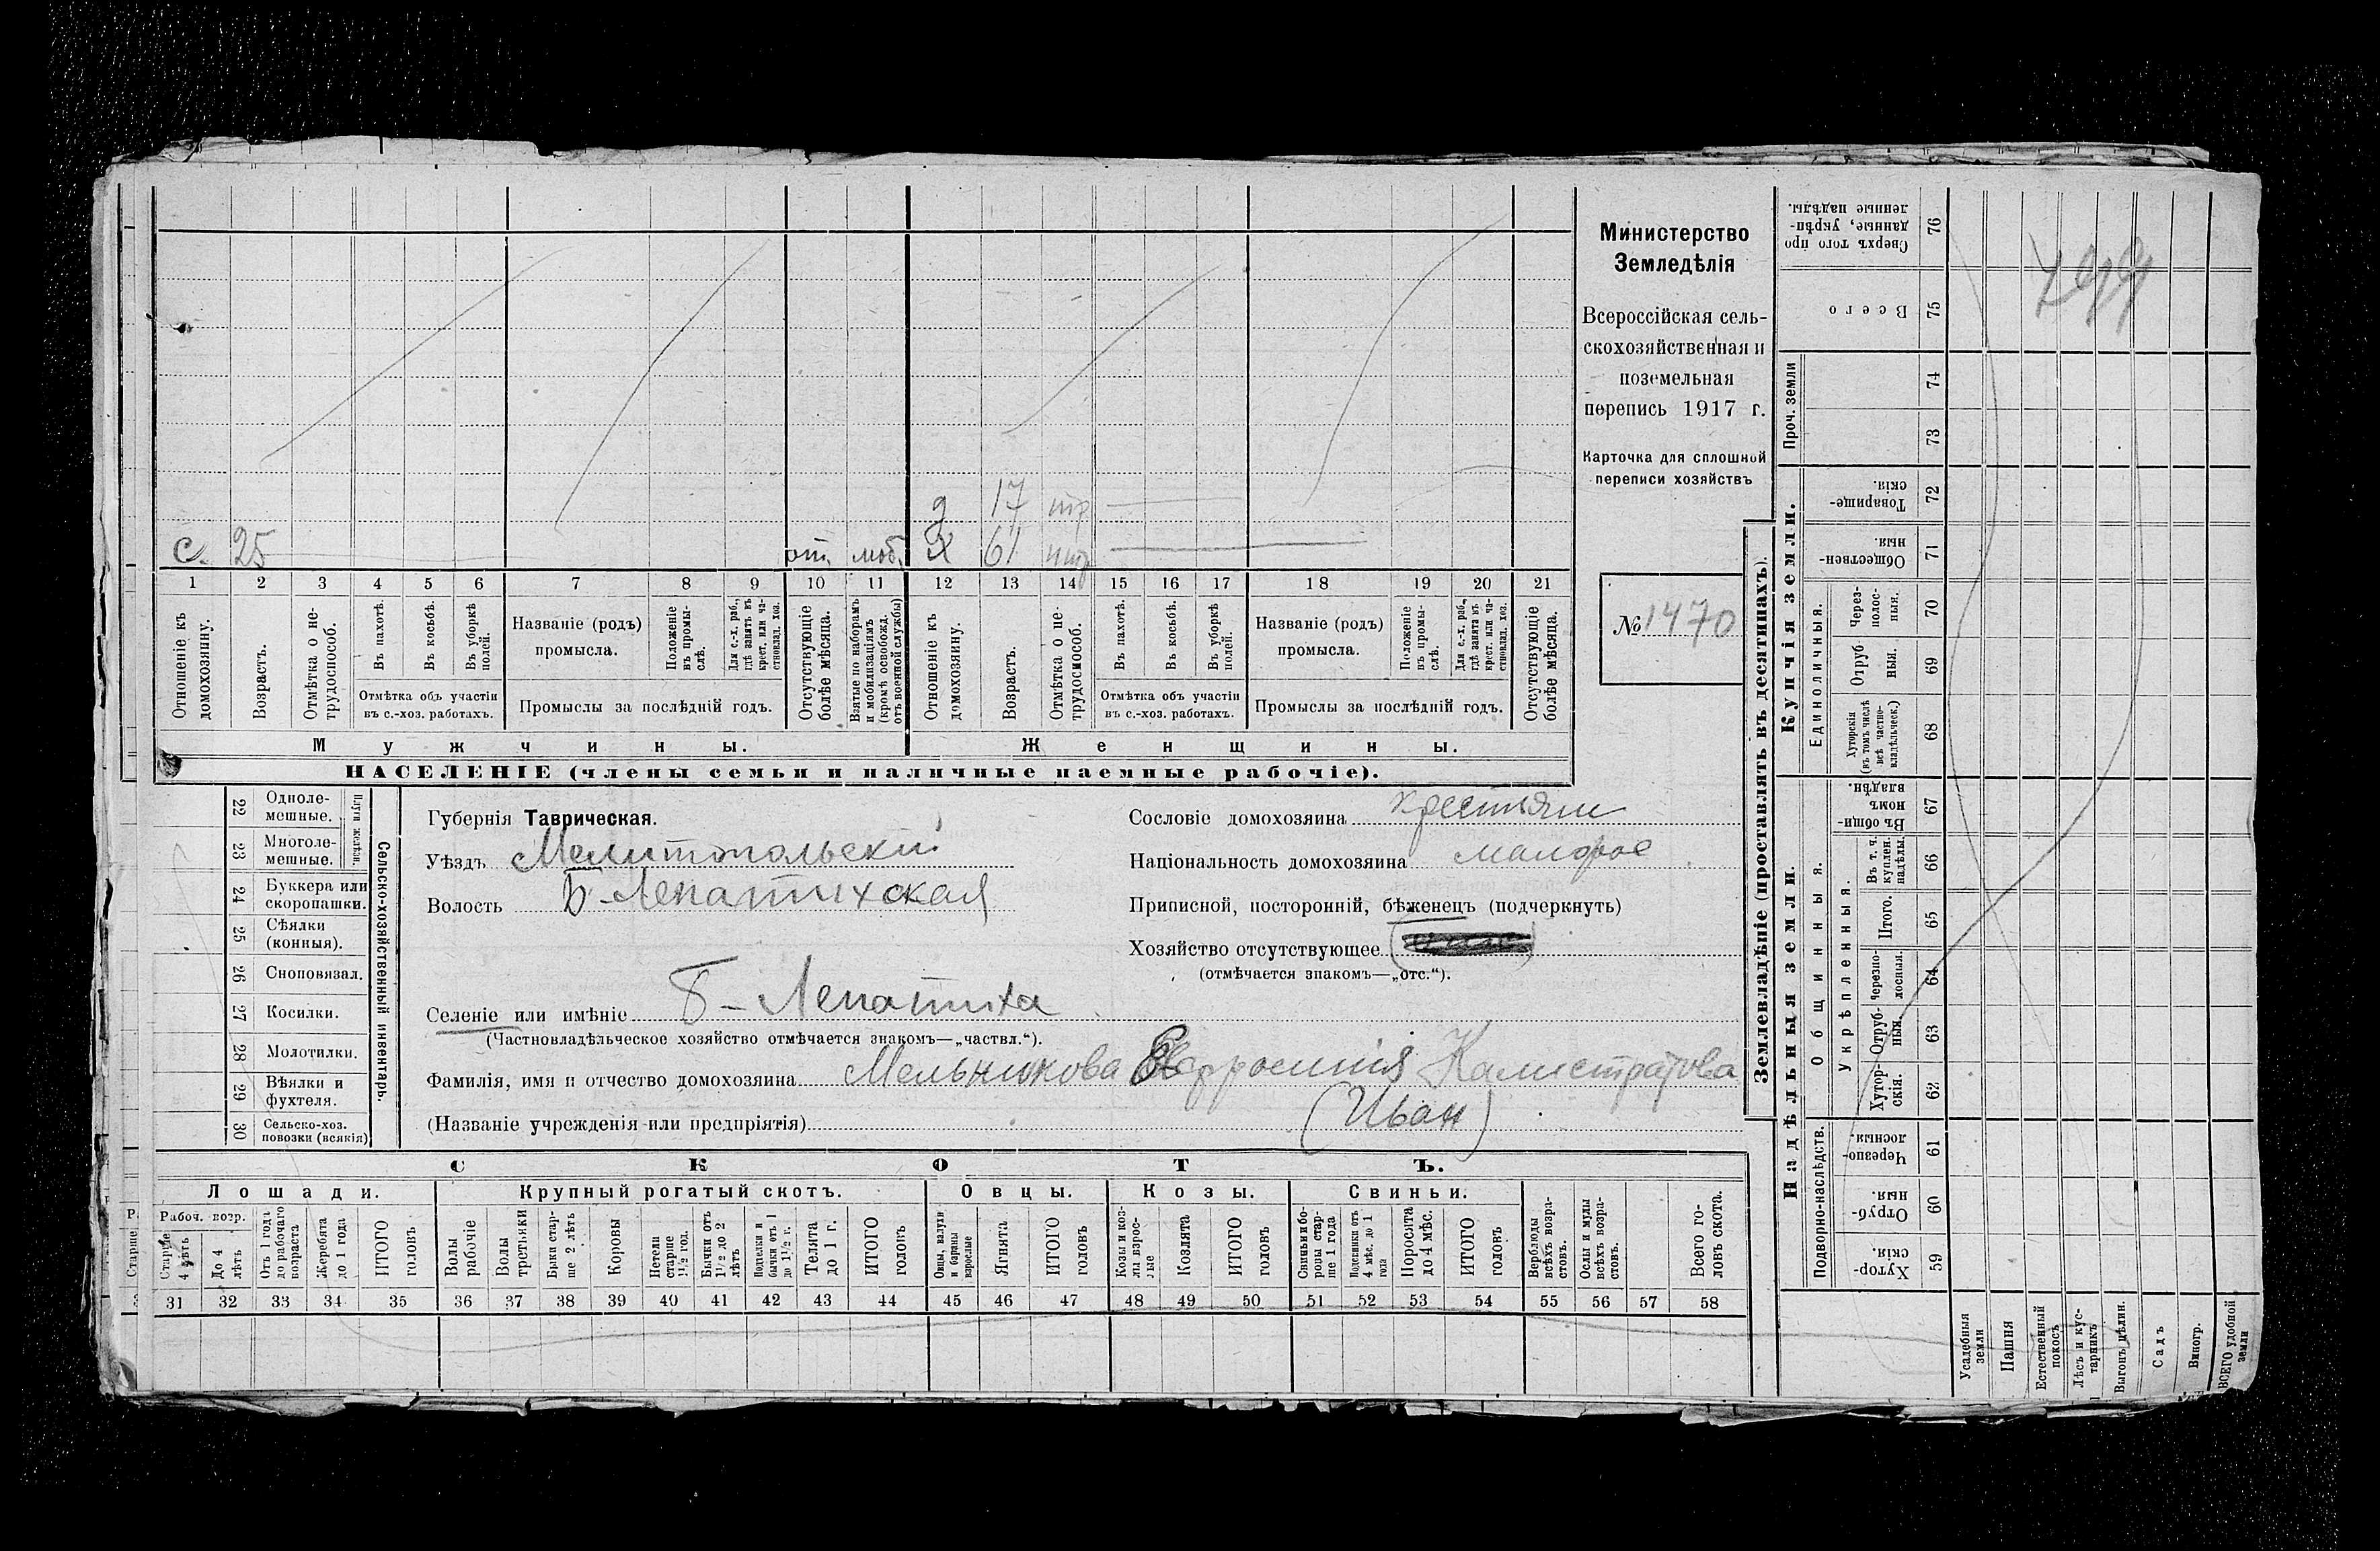 Министерство
Земледѣлія
Всероссійская сель-
скохозяйственная и
поземельная
перепись 1917 г.
Карточка для сплошной
переписи хозяйствъ
№ 1470
д 17
с. 25 от. моб. х 61
1 2 3 4 5 6 7 8 9 10 11 12 13 14 15 16 17 18 19 20 21
Отношеніе къ домохозяину.
Возрастъ.
Отмѣтка о не-трудоспособ.
Въ пахотѣ.
Въ косьбѣ.
Въ уборкѣ полей.
Отмѣтка объ участіи
въ с.-хоз. работахъ.
Названіе (родъ)
промысла.
Положеніе въ промы-слѣ.
Для с.-х. раб., гдѣ занятъ въ крест. или ча-стновлад. хоз.
Промыслы за послѣдній годъ.
Отсутствующіе болѣе мѣсяца.
Взятые по наборамъ и мобилизаціямъ (кромѣ освобожд. отъ военной службы)
Отношеніе къ домохозяину.
Возрастъ.
Отмѣтка о не-трудоспособ.
Въ пахотѣ.
Въ косьбѣ.
Въ уборкѣ полей.
Отмѣтка объ участіи
въ с.-хоз. работахъ.
Названіе (родъ)
промысла.
Положеніе въ промы-слѣ.
Для с.-х. раб., гдѣ занята въ крест. или ча-стновлад. хоз.
Промыслы за послѣдній годъ.
Отсутствующіе болѣе мѣсяца.
Мужчины.
Женщины.
НАСЕЛЕНІЕ (члены семьи и наличные наемные рабочіе).
22 Одноле-мешные.
23 Многоле-мешные.
Плуги желѣзн.
24 Буккера или скоропашки.
25 Сѣялки (конныя).
26 Сноповязал.
27 Косилки.
28 Молотилки.
29 Вѣялки и фухтеля.
30 Сельско-хоз. повозки (всякія)
Сельско-хозяйственный инвентарь.
Губернія Таврическая.
Уѣздъ Мелитопольскій
Волость Б-Лепатихская
Селеніе или имѣніе Б-Лепатиха
(Частновладѣльческое хозяйство отмѣчается знакомъ—„частвл.“).
Фамилія, имя и отчество домохозяина Мельникова Евфросинія Калистратова
(Названіе учрежденія или предпріятія) (Иван)
Сословіе домохозяина крестьян
Національность домохозяина малорос
Приписной, посторонній, бѣженецъ (подчеркнуть)
Хозяйство отсутствующее
(отмѣчается знакомъ—„отс.“).
СКОТЪ.
Лошади.
Крупный рогатый скотъ.
Овцы.
Козы.
Свиньи.
Рабоч. возр.
Старше 4 лѣтъ
До 4 лѣтъ
Отъ 1 года до рабочаго возраста
Жеребята до 1 года
ИТОГО головъ
Волы рабочіе
Волы третьяки
Быки стар-ше 2 лѣтъ
Коровы
Нетели старше 1½ год.
Бычки отъ 1½ до 2 лѣтъ
Подтелки и бычки отъ 1 до 1½ г.
Телята до 1 г.
ИТОГО головъ
Овцы, валухи и бараны взрослые
Ягнята
ИТОГО головъ
Козы и коз-лы взрос-лые
Козлята
ИТОГО головъ
Свиньи и бо-ровы стар-ше 1 года
Подсвинки отъ 4 мѣс. до 1 года
Поросята до 4 мѣс.
ИТОГО головъ
Верблюды всѣхъ возра-стовъ.
Ослы и мулы всѣхъ возра-стовъ.
Всего го-ловъ скота.
31 32 33 34 35 36 37 38 39 40 41 42 43 44 45 46 47 48 49 50 51 52 53 54 55 56 57 58
Землевладѣніе (проставлять въ десятинахъ).
Надѣльныя земли.
Купчія земли.
Проч. земли
Подворно-наслѣдств.
Общинныя.
Укрѣпленныя.
Единоличныя.
Сверхъ того про данные, укрѣп-ленные надѣлы. 76
Всего 75
74
73
Товарище-скія. 72
Обществен-ныя. 71
Через-полос-ныя. 70
Отруб-ныя. 69
Хуторскія (въ томъ числѣ всѣ частно-владѣльческ.) 68
Въ общи-номъ владѣн. 67
Въ т. ч. куплен. надѣлы. 66
Итого. 65
Черезпо-лосныя. 64
Отруб-ныя. 63
Хутор-скія. 62
Черезпо-лосныя. 61
Отруб-ныя. 60
Хутор-скія. 59
Усадебныя земли
Пашня
Естественный покосъ
Лѣсъ и кус-тарникъ
Выгонъ, цѣлин.
Садъ
Виногр.
ВСЕГО удобной земли